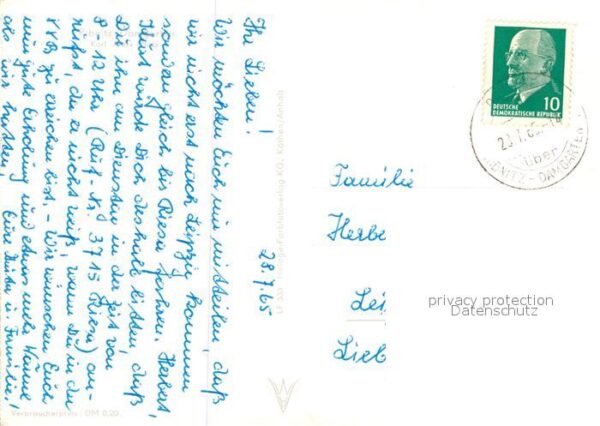 Ihr Lieben!
Wir möchten Euch nur mitteilen, daß
wir nicht erst nach Leipzig kommen
sondern gleich bis Riesa fahren. Herbert
Kurt würde Dich deshalb bitten, daß
Du ihn am Dienstag in der Zeit von
8 12 Uhr (Ruf-Nr. 3715 Riesa) an-
rufst, da er nicht weiß, wann Du in der
zu erreichen bist. – Wir wünschen Euch
nun gute Erholung und etwas mehr Wärme
als wir hatten. Eure u. Familie!
28.7.65
Verbraucherpreis: DM 0,20
DEUTSCHE
DEMOKRATISCHE REPUBLIK
10
über
RIBNITZ-DAMGARTEN
Familie
Herbe
Lei
Lieb
privacy protection
Datenschutz